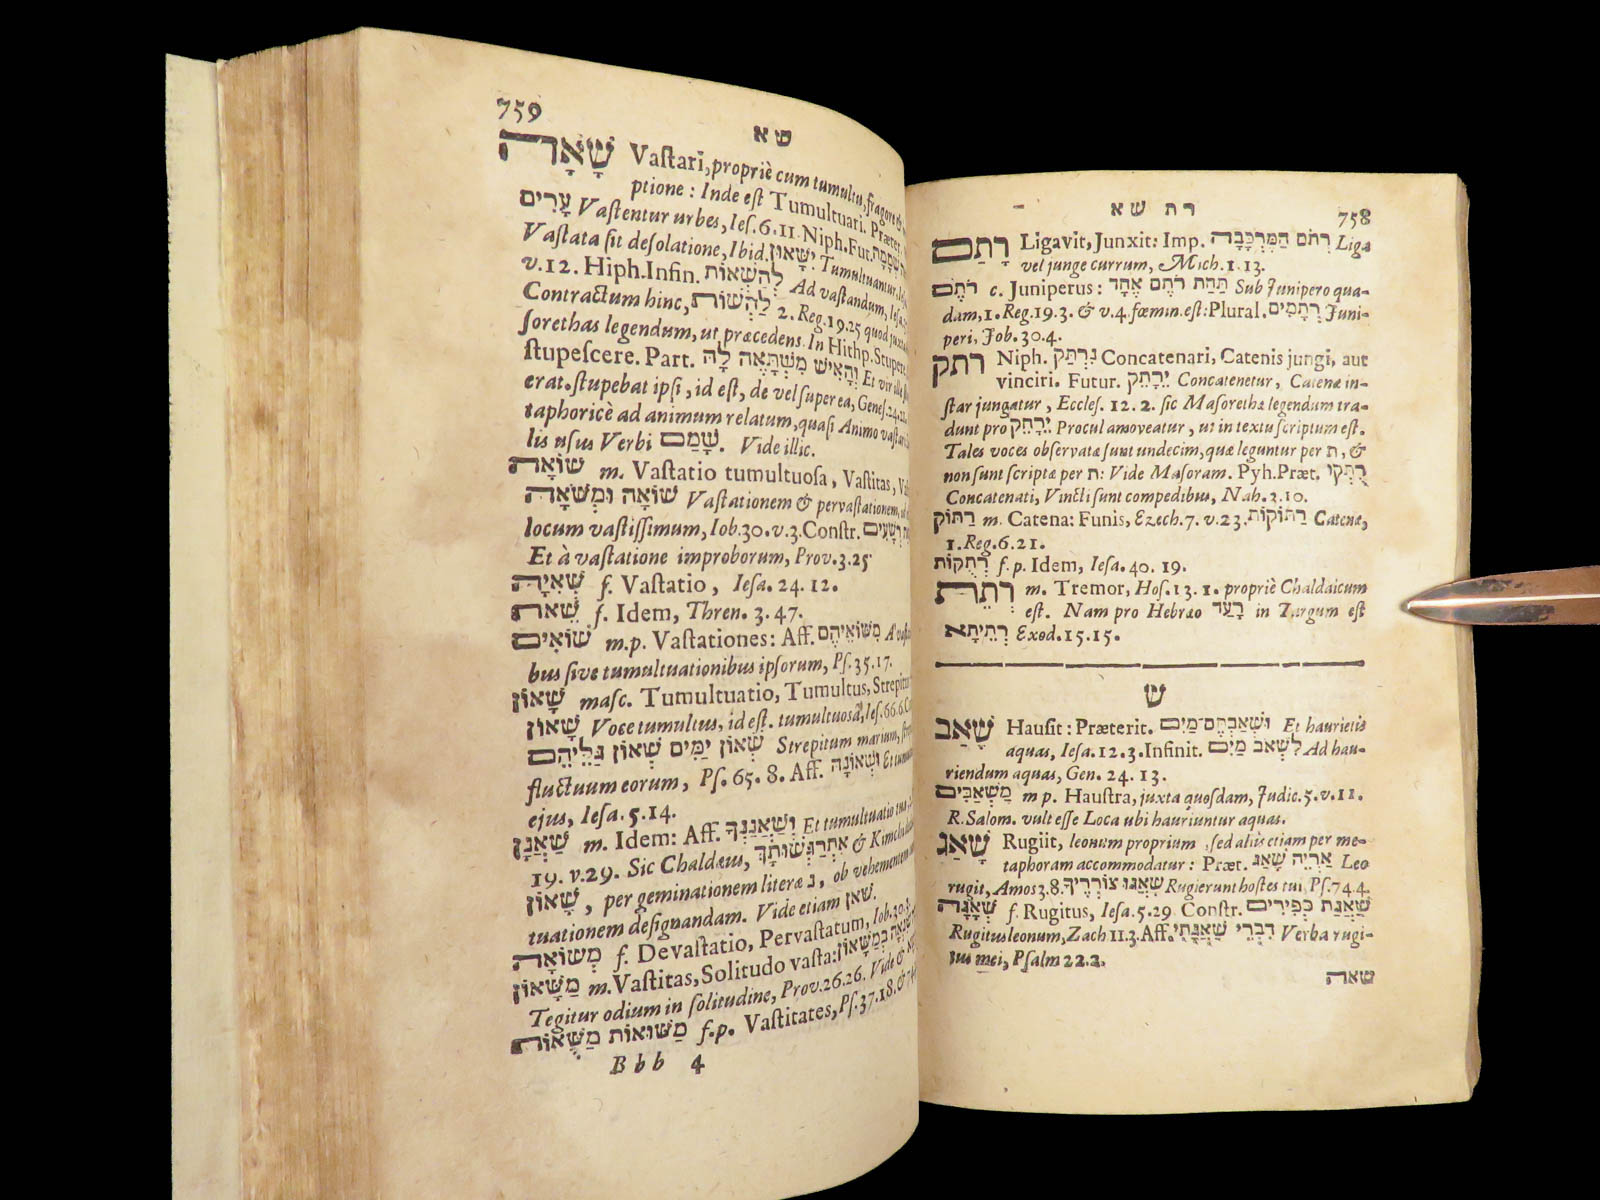 רת שא 758
רָתַם Ligavit, Junxit: Imp. רְתֹם הַמֶּרְכָּבָה Liga
vel junge currum, Mich. 1. 13.
רֹתֶם c. Juniperus: תַּחַת רֹתֶם אֶחָד Sub Junipero qua-
dam, 1. Reg. 19. 3. & v. 4. fœmin. est: Plural. רְתָמִים Juni-
peri, Job. 30. 4.
רתק Niph. נִרְתַּק Concatenari, Catenis jungi, aut
vinciri. Futur. יֵרָתֵק Concatenetur, Catenæ in-
star jungatur, Eccles. 12. 2. sic Masorethæ legendum tra-
dunt pro יֵרָחֵק Procul amoveatur, ut in textu scriptum est.
Tales voces observatæ sunt undecim, quæ leguntur per ת, &
non sunt scriptæ per ת: Vide Masoram. Pyh. Præt. רֻתְּקוּ
Concatenati, Vincti sunt compedibus, Nah. 3. 10.
רַתּוֹק m. Catena: Funis, Ezech. 7. v. 23. רַתּוֹקוֹת Catenæ,
1. Reg. 6. 21.
רְתֻקוֹת f. p. Idem, Iesa. 40. 19.
רְתֵת m. Tremor, Hos. 13. 1. propriè Chaldaicum
est. Nam pro Hebræo רָעַד in Targum est
רְתֵיתָא Exod. 15. 15.
ש
שָׁאַב Hausit: Præterit. וּשְׁאַבְתֶּם־מַיִם Et haurietis
aquas, Iesa. 12. 3. Infinit. לִשְׁאֹב מַיִם Ad hau-
riendum aquas, Gen. 24. 13.
מַשְׁאַבִּים m p. Haustra, juxta quosdam, Judic. 5. v. 11.
R. Salom. vult esse Loca ubi hauriuntur aquas.
שָׁאַג Rugiit, leonum proprium, sed aliis etiam per me-
taphoram accommodatur: Præt. אַרְיֵה שָׁאַג Leo
rugit, Amos 3. 8. שָׁאֲגוּ צוֹרְרֶיךָ Rugierunt hostes tui, Ps. 74 4.
שְׁאָגָה f. Rugitus, Iesa. 5. 29 Constr. שַׁאֲגַת כְּפִירִים
Rugitus leonum, Zach 11. 3. Aff. דִּבְרֵי שַׁאֲגָתִי Verba rugi-
tus mei, Psalm 22. 2.
שאה
759 שא
שָׁאָה Vastari, propriè cum tumultu, fragore &
ptione: Inde est Tumultuari. Præter.
עָרִים Vastentur urbes, Ies. 6. 11 Niph. Fut.
Vastata sit desolatione, Ibid. יִשָּׁאוּן Tumultuantur,
v. 12. Hiph. Infin. לְהַשְׁאוֹת Ad vastandum, Iesa.
Contractum hinc, לַהְשׁוֹת 2. Reg. 19. 25 quod juxta
sorethas legendum, ut præcedens. In Hithp. Stupere,
stupescere. Part. וְהָאִישׁ מִשְׁתָּאֵה לָהּ Et vir ille
erat. stupebat ipsi, id est, de vel super ea, Genes. 24. 21.
taphoricè ad animum relatum, quasi Animo vastari
lis usus Verbi שָׁמַם. Vide illic.
שׁוֹאָה m. Vastatio tumultuosa, Vastitas,
שׁוֹאָה וּמְשֹׁאָה Vastationem & pervastationem,
locum vastissimum, Iob. 30. v. 3. Constr. רְשָׁעִים
Et à vastatione improborum, Prov. 3. 25
שְׁאִיָּה f. Vastatio, Iesa. 24. 12.
שֵׁאת f. Idem, Thren. 3. 47.
שׁוֹאִים m. p. Vastationes: Aff. מִשּׁוֹאֵיהֶם A vasta
bus sive tumultuationibus ipsorum, Ps. 35. 17.
שָׁאוֹן masc. Tumultuatio, Tumultus, Strepitus
שָׁאוֹן Voce tumultus, id est, tumultuosâ, Ies. 66. 6.
שְׁאוֹן יַמִּים שְׁאוֹן גַּלֵּיהֶם Strepitum marium,
fluctuum eorum, Ps. 65. 8. Aff. וּשְׁאוֹנָהּ Et tumul
ejus, Iesa. 5. 14.
שַׁאֲנָן m. Idem: Aff. וְשַׁאֲנַנְךָ Et tumultuatio tua,
19. v. 29. Sic Chaldæus, אִתְרַגְּשׁוּתָךְ & Kimchi
שָׁאוֹן, per geminationem literæ נ, ob vehementem
tuationem designandam. Vide etiam שאן.
מְשׁוֹאָה f. Devastatio, Pervastatum, Iob. 30. 3.
מַשָּׁאוֹן m. Vastitas, Solitudo vasta: שִׂנְאָה בְּמַשָּׁאוֹן
Tegitur odium in solitudine, Prov. 26. 26. Vide &
מַשּׁוּאוֹת מַשֻּׁאוֹת f. p. Vastitates, Ps. 37. 18. & 74
Bbb 4